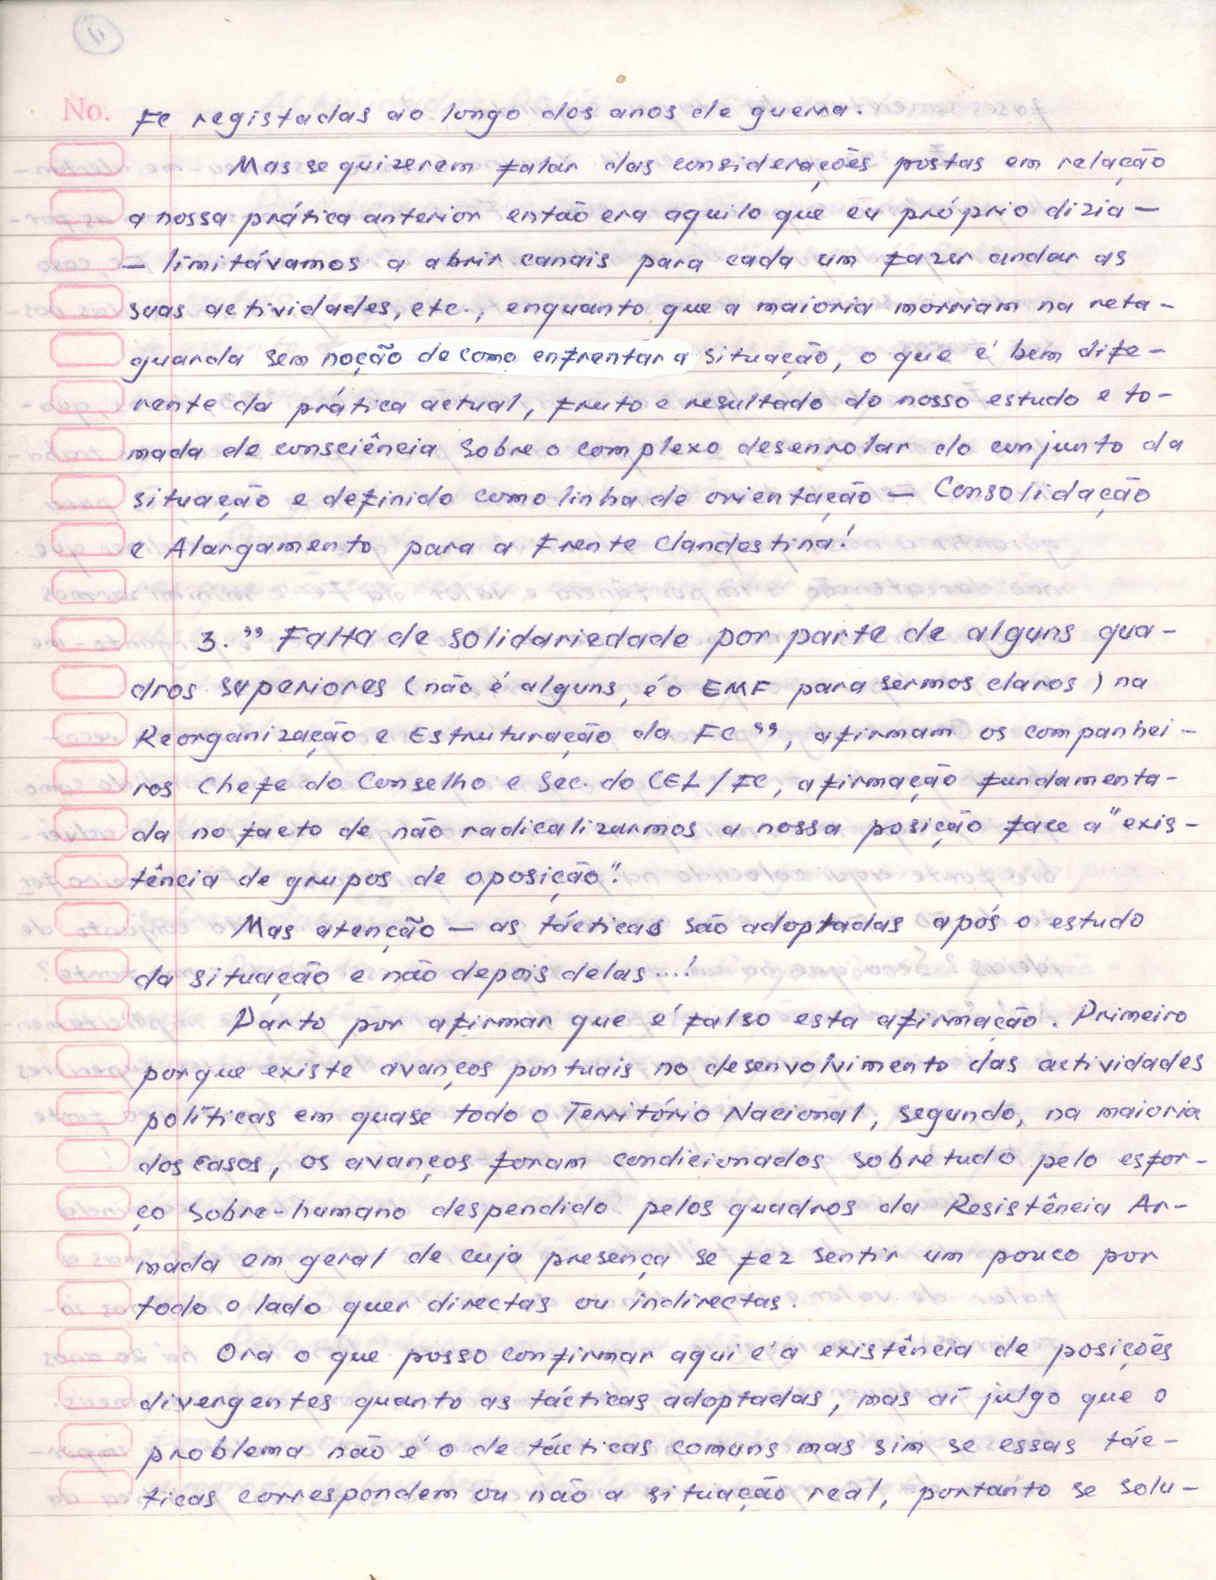 11
No.
FC registadas ao longo dos anos de guerra.
Mas se quizerem falar das considerações postas em relação
a nossa prática anterior então era aquilo que eu próprio dizia —
— limitávamos a abrir canais para cada um fazer andar as
suas actividades, etc., enquanto que a maioria morriam na reta-
guarda sem noção de como enfrentar a situação, o que é bem dife-
rente da prática actual, fruto e resultado do nosso estudo e to-
mada de consciência sobre o complexo desenrolar do conjunto da
situação e definido como linha de orientação — Consolidação
e Alargamento para a Frente Clandestina!
3. " Falta de solidariedade por parte de alguns qua-
dros superiores (não é alguns, é o EMF para sermos claros) na
Reorganização e Estruturação da FC ", afirmam os companhei-
ros Chefe do Conselho e Sec. do CEL/FC, afirmação fundamenta-
da no facto de não radicalizarmos a nossa posição face a "exis-
tência de grupos de oposição".
Mas atenção — as tácticas são adoptadas após o estudo
da situação e não depois delas...!
Parto por afirmar que é falso esta afirmação. Primeiro
porque existe avanços pontuais no desenvolvimento das actividades
políticas em quase todo o Território Nacional, segundo, na maioria
dos casos, os avanços foram condicionados sobretudo pelo esfor-
ço sobre-humano despendido pelos quadros da Resistência Ar-
mada em geral de cuja presença se fez sentir um pouco por
todo o lado quer directas ou indirectas.
Ora o que posso confirmar aqui é a existência de posições
divergentes quanto as tácticas adoptadas, mas aí julgo que o
problema não é o de tácticas comuns mas sim se essas tác-
ticas correspondem ou não a situação real, portanto se solu-